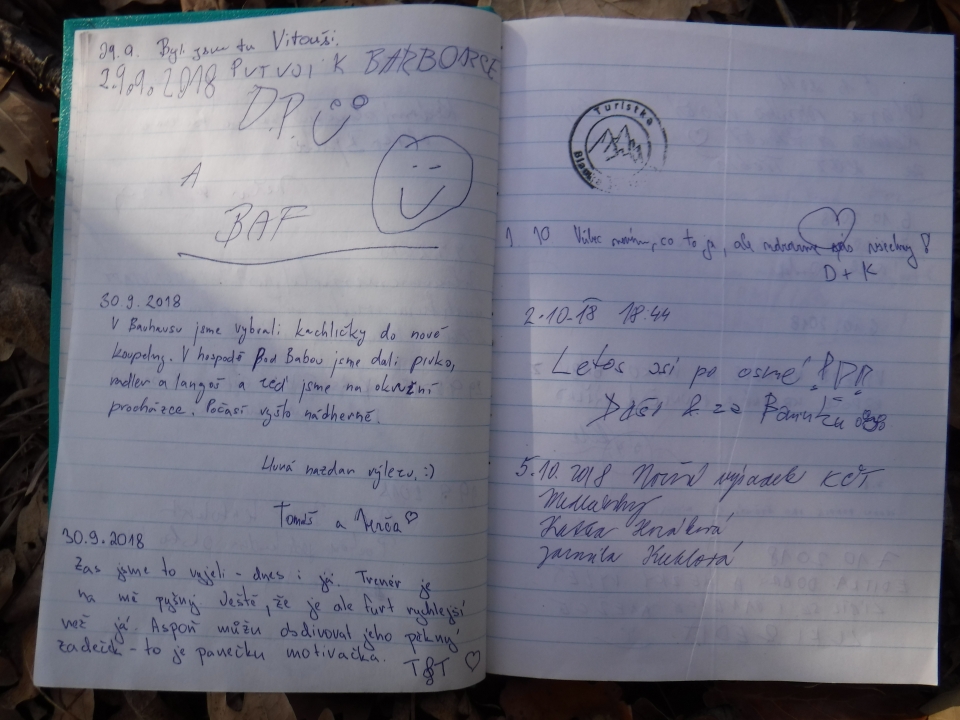 29.9. Byli jsme tu Vitouši.
29.9.2018 PUTVOI K BARBORCE
D.P.
A
BAF
30.9.2018
V Bauhausu jsme vybrali kachličky do nové
koupelny. V hospodě Pod Babou jsme dali pivko,
radler a langoš a teď jsme na okružní
procházce. Počasí vyšlo nádherně.
Hurá nazdar výletu. :)
Tomáš a Verča ♡
30.9.2018
Zas jsme to vyjeli - dnes i já. Trenér je
na mě pyšný. Ještě, že je ale furt rychlejší
než já. Aspoň můžu obdivovat jeho pěkný
zadeček - to je panečku motivačka.
T&T ♡
Turistká
1 10 Vůbec nevím, co to je, ale zdravíme všechny!
D + K
2.10.18 18.44
Letos asi po osmé!
5.10.2018 Noční výpadek KČT
Jarmila